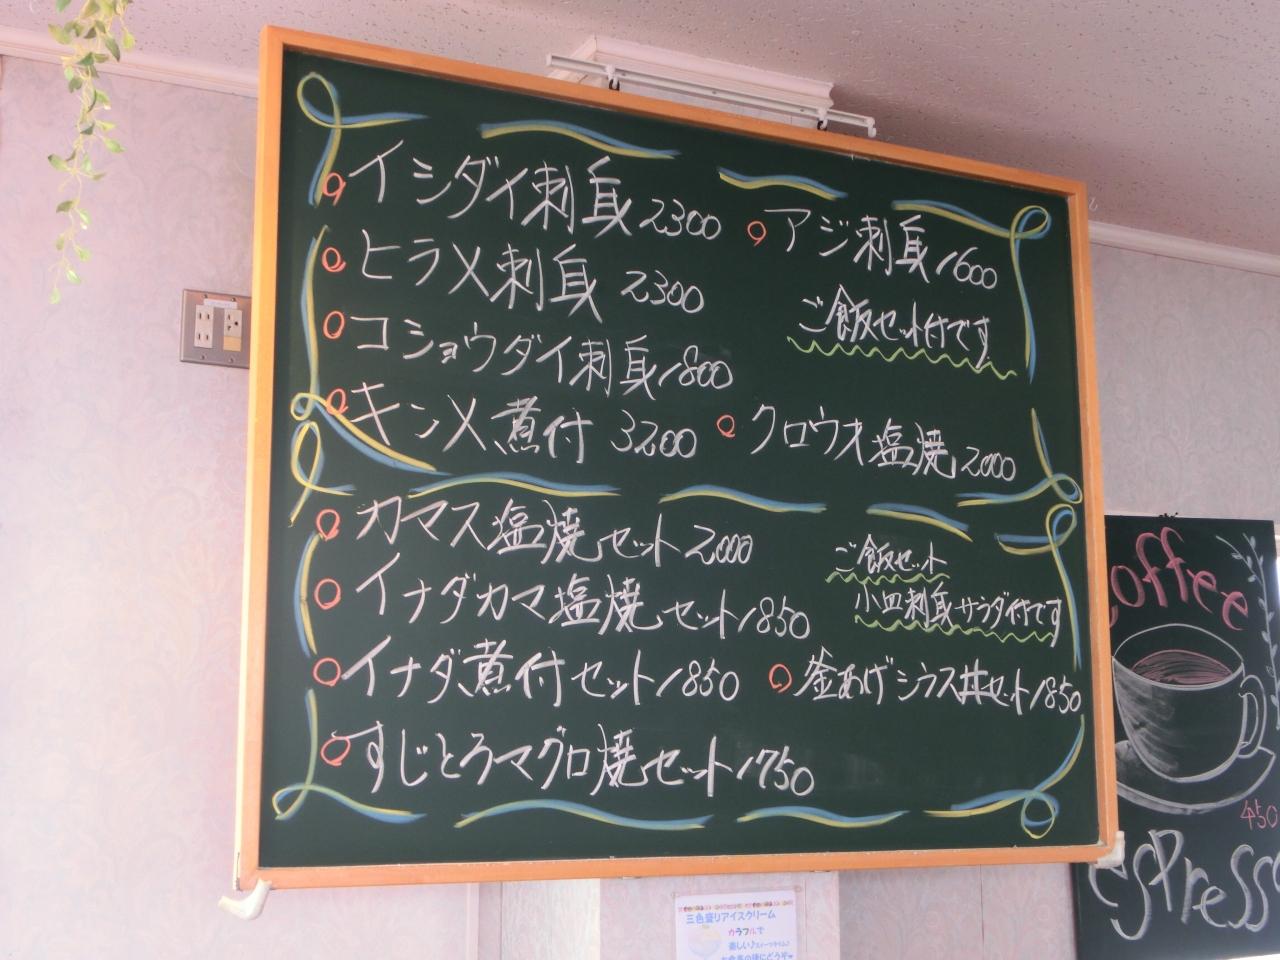 イシダイ刺身 2300
ヒラメ刺身 2300
コショウダイ刺身 1800
キンメ煮付 3200
アジ刺身 1600
ご飯セット付です
クロウオ塩焼 2000
カマス塩焼セット 2000
イナダカマ塩焼セット 1850
イナダ煮付セット 1850
すじとろマグロ焼セット 1750
ご飯セット
小皿刺身サラダ付です
釜あげシラス丼セット 1850
coffee
450
espresso
三色盛りアイスクリーム
カラフルで
楽しい♪スイーツタイム♪